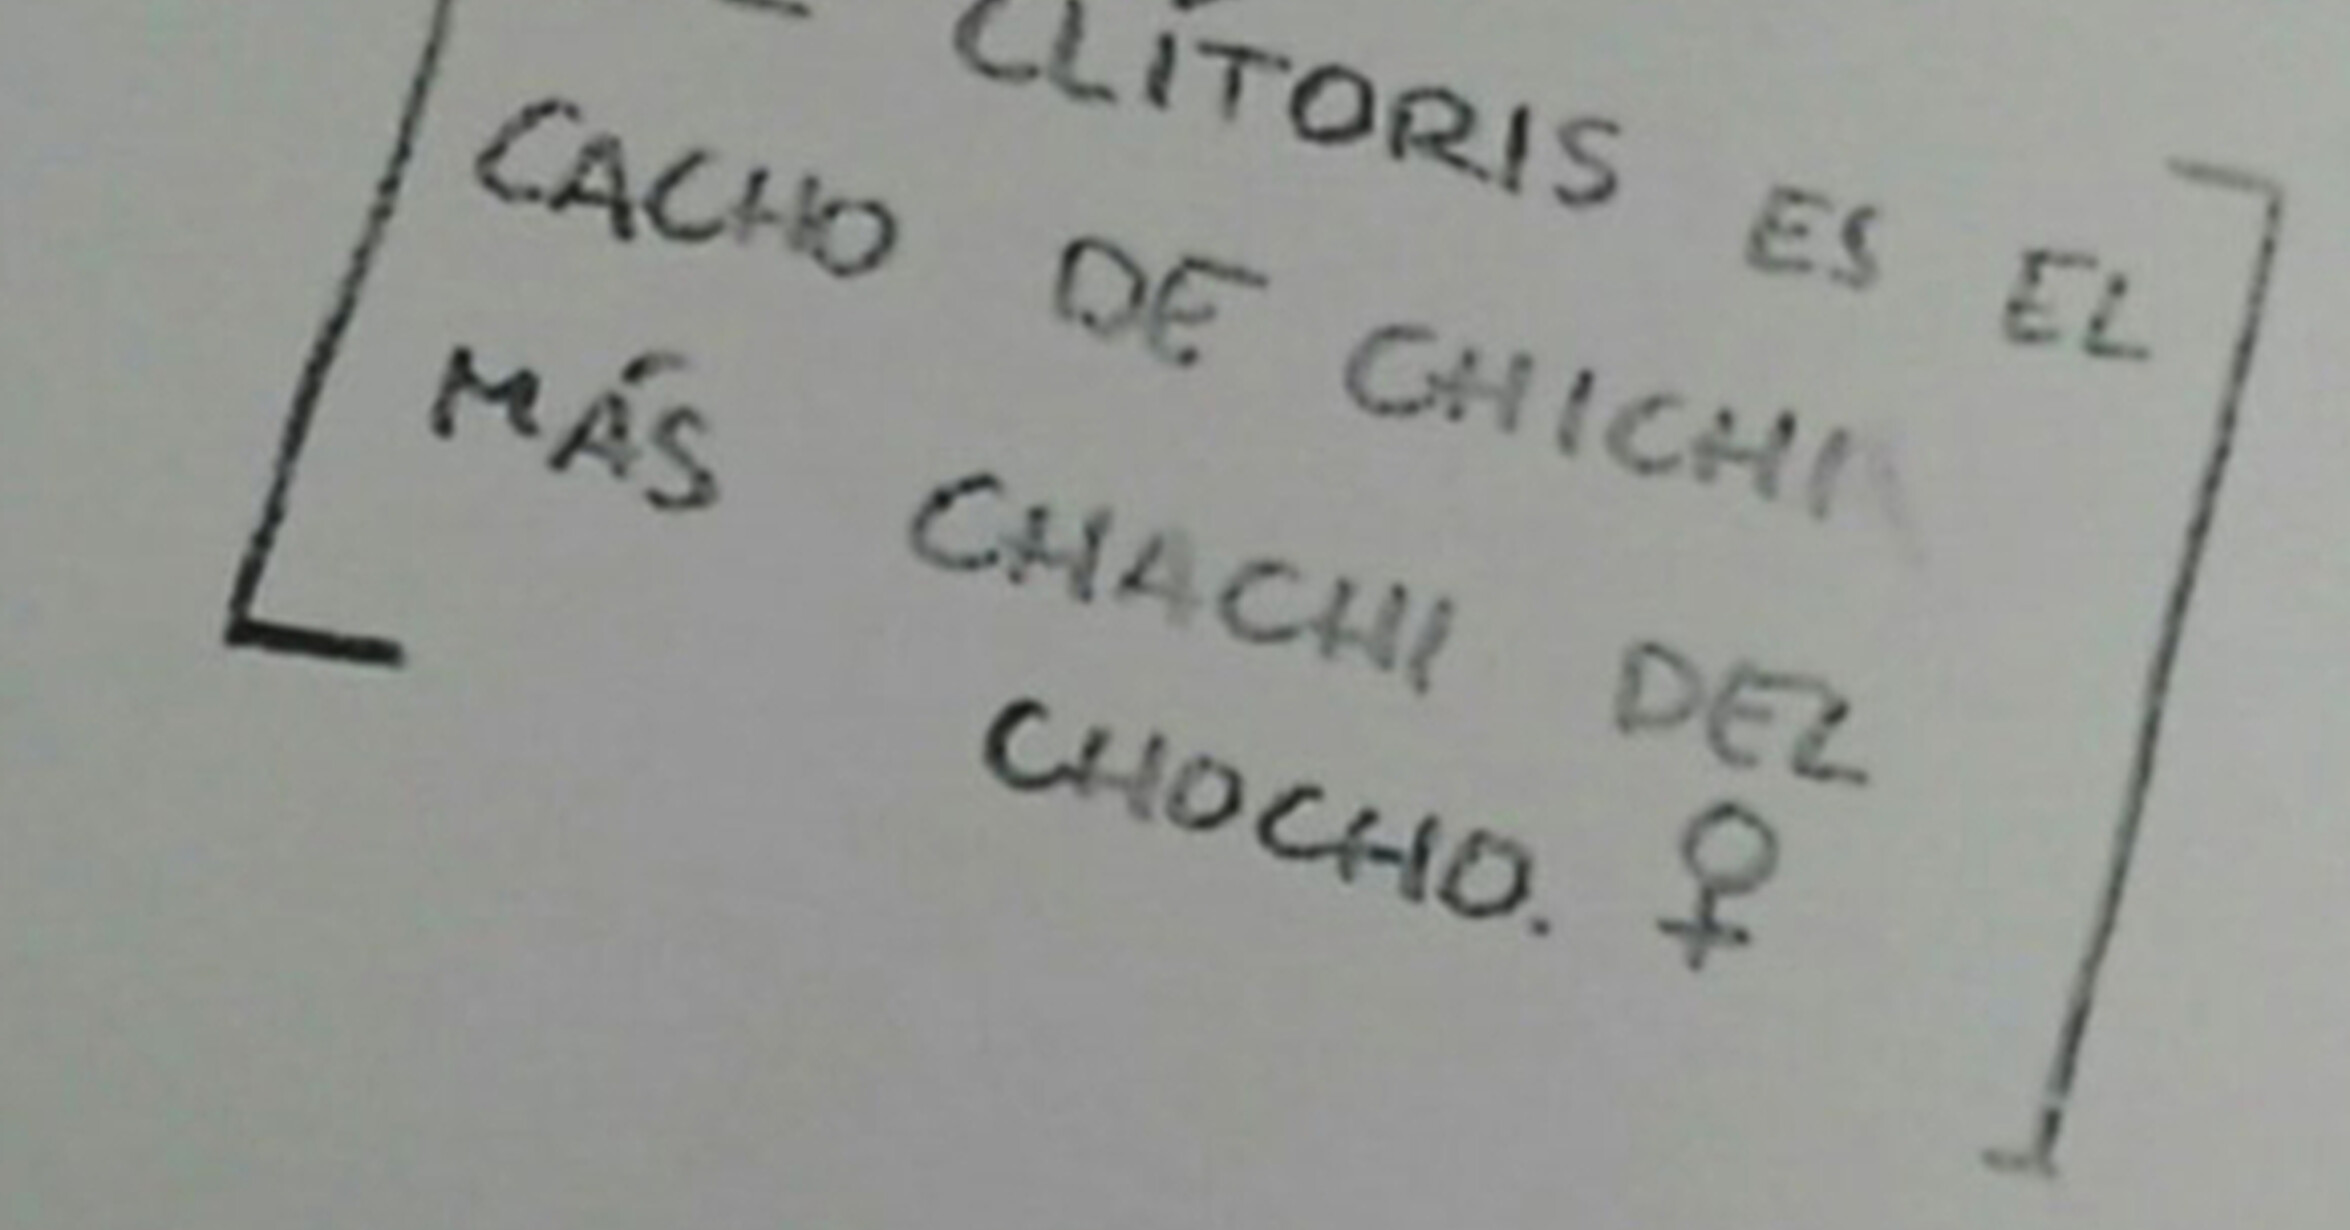 CLÍTORIS ES EL
CACHO DE CHICHI
MÁS CHACHI DEL
CHOCHO. ♀